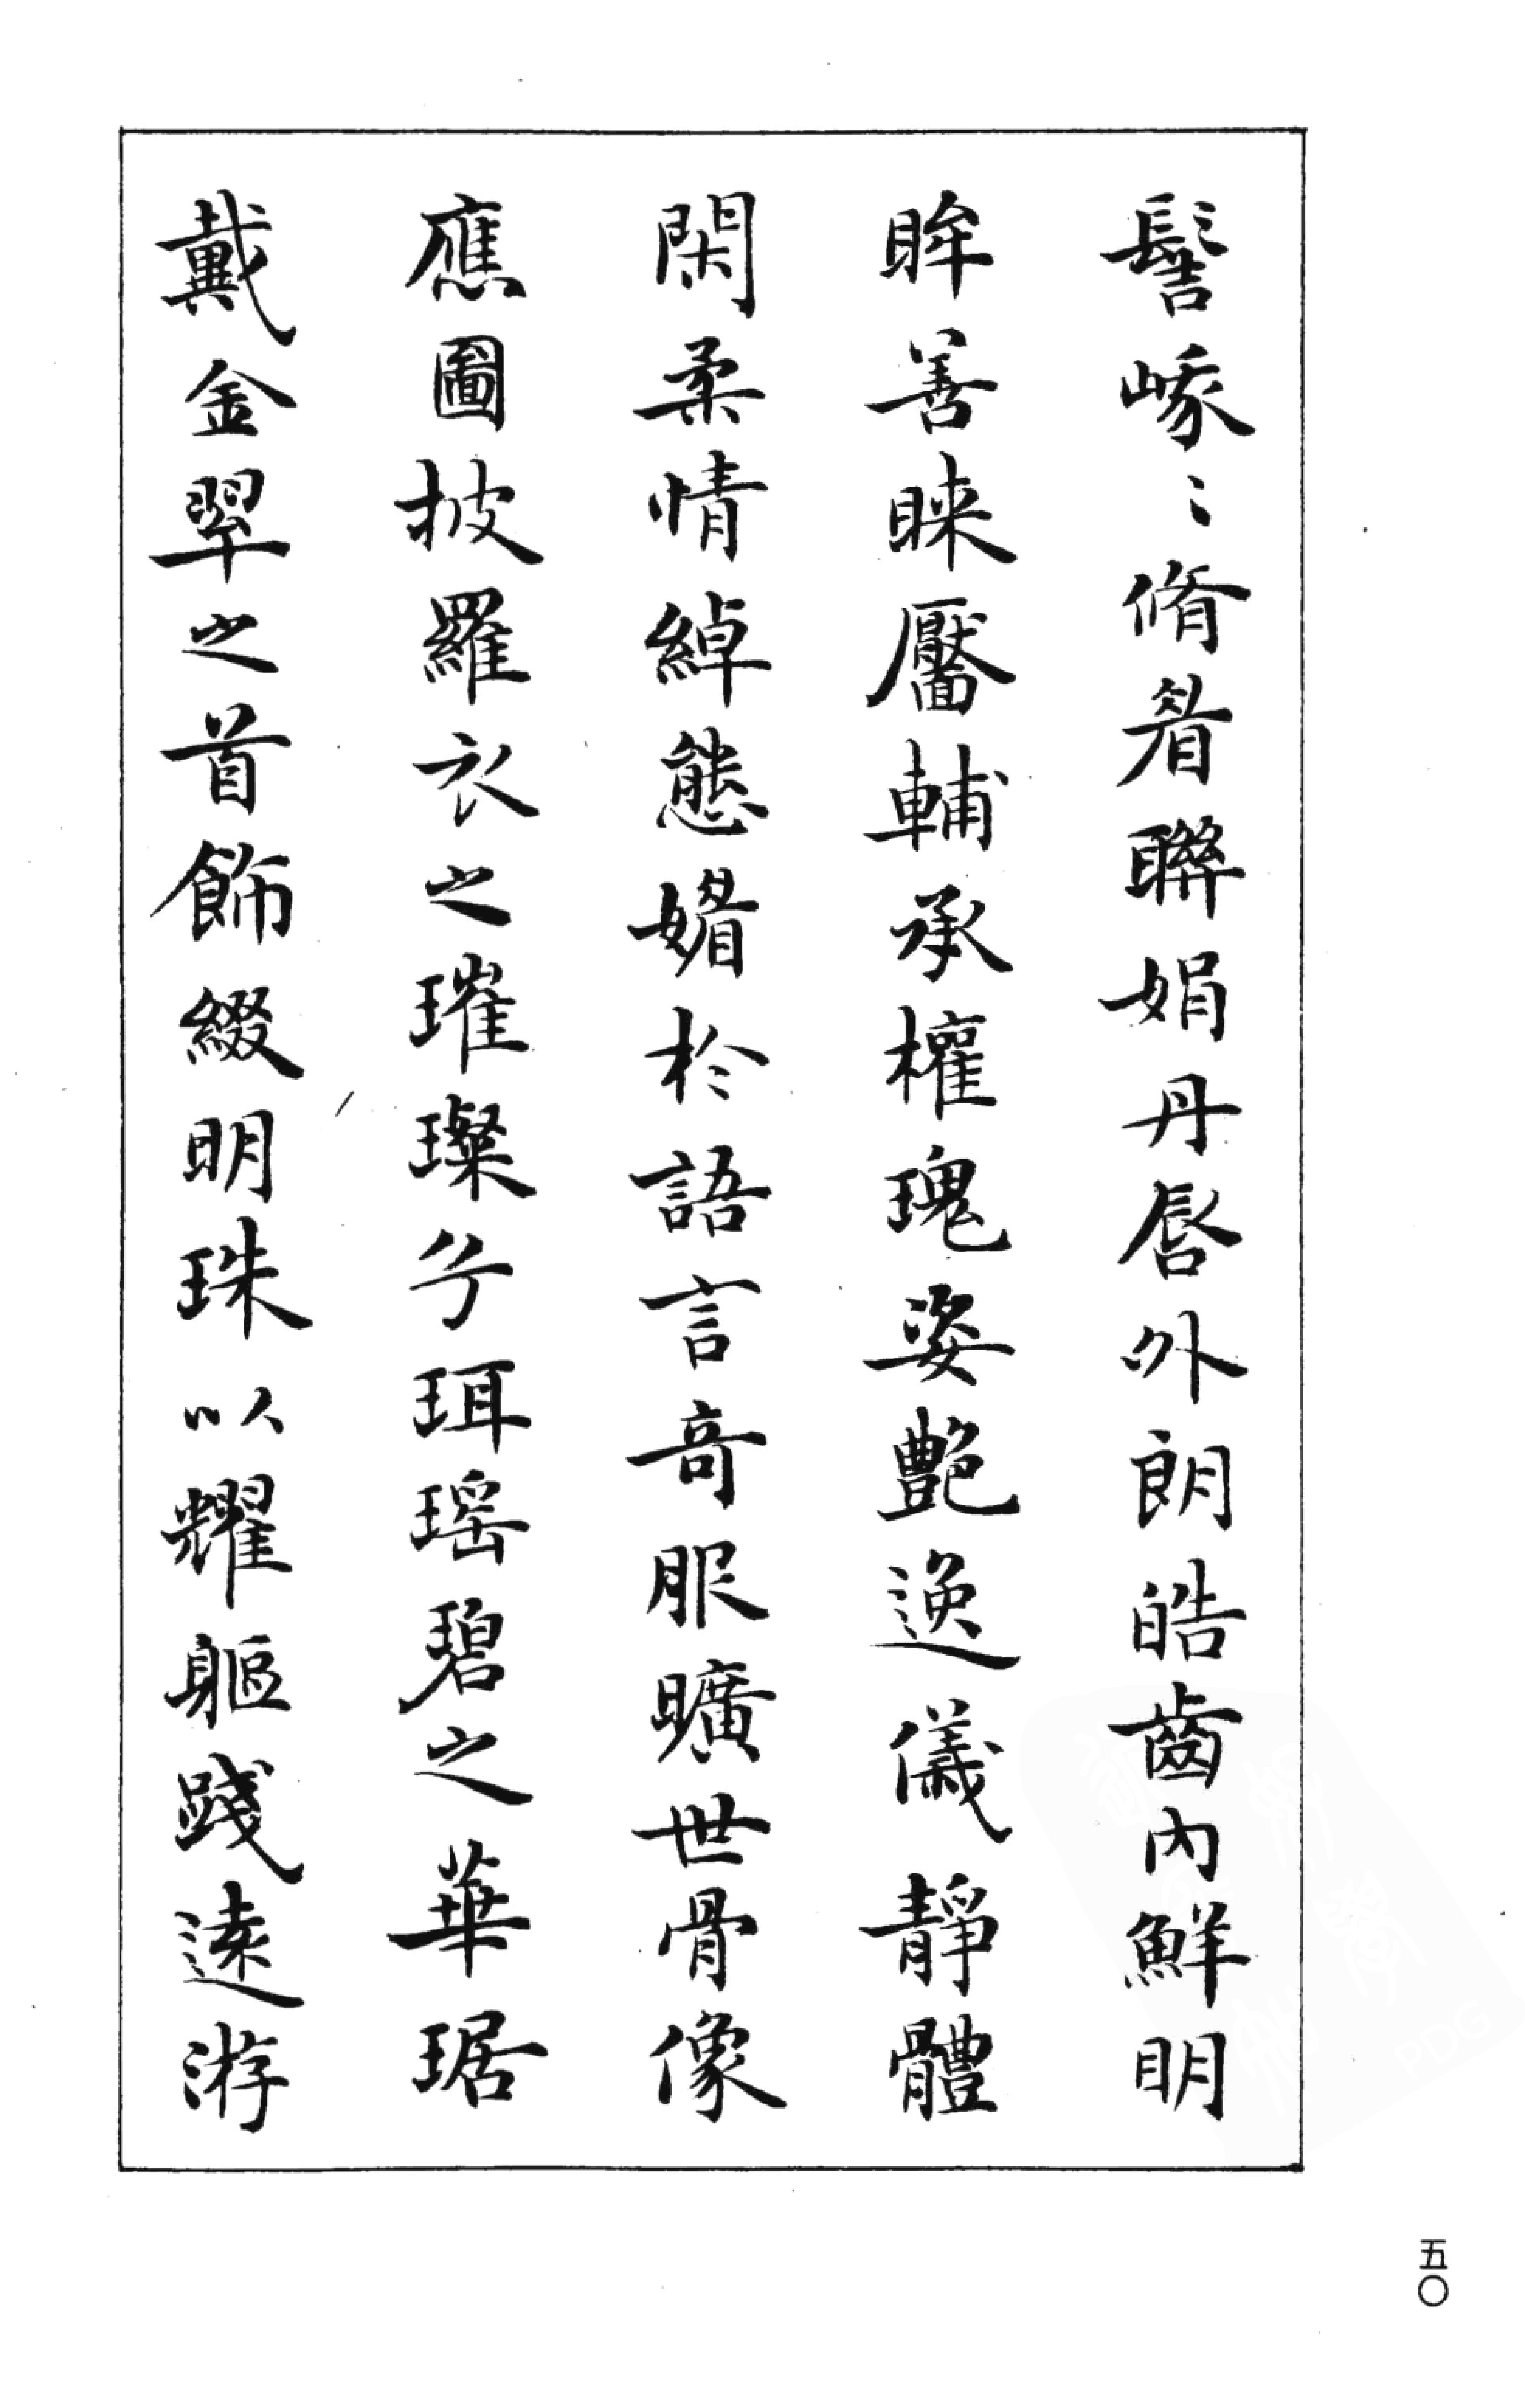 髻峩〻脩眉聯娟丹唇外朗皓齒內鮮明
眸善睞靨輔承權瑰姿艶逸儀静體
閑柔情綽態媚於語言奇服曠世骨像
應圖披羅衣之璀璨兮珥瑶碧之華琚
戴金翠之首飾綴明珠以耀軀踐遠游
五〇